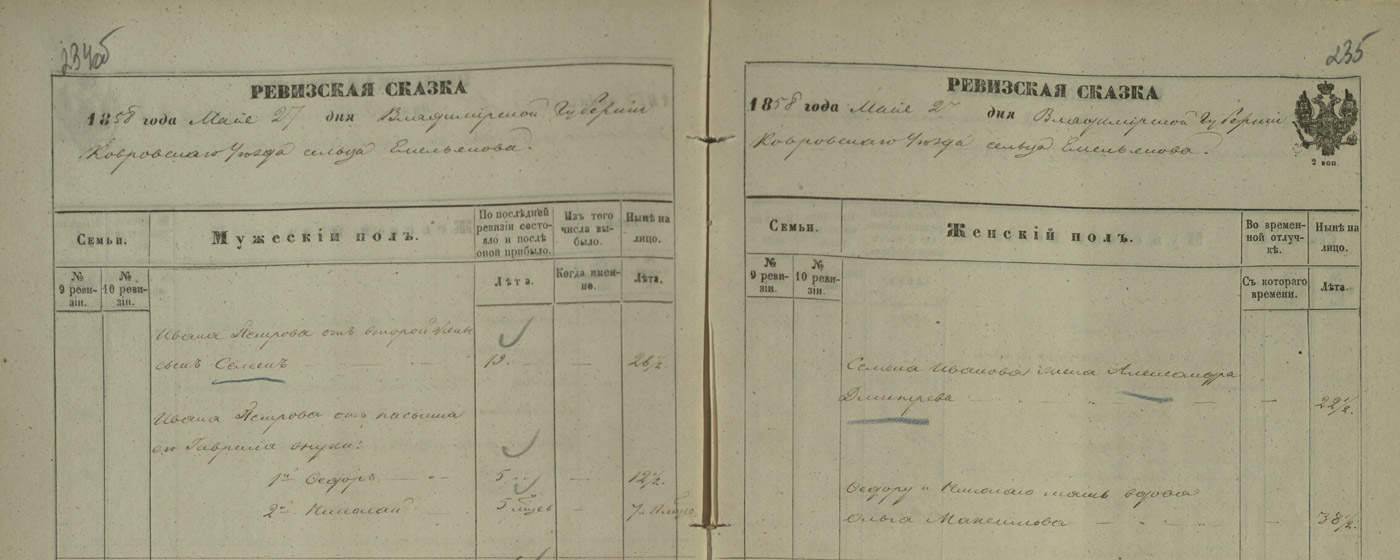 234об
РЕВИЗСКАЯ СКАЗКА
1858 года Мая 27 дня Владимірской Губерніи
Ковровскаго Уѣзда сельца Емельянова.
Семьи.
Мужескій полъ.
По послѣдней ревизіи состояло и послѣ оной прибыло.
Изъ того числа выбыло.
Нынѣ на лицо.
№ 9 ревизіи.
№ 10 ревизіи.
Лѣта.
Когда именно.
Лѣта.
Ивана Петрова отъ второй жены
сынъ Семенъ 19. — 26½
Ивана Петрова отъ пасынка
его Гаврила внуки:
1й Федоръ 5 — 12½.
2й Николай 5 мѣсяц — 7
235
РЕВИЗСКАЯ СКАЗКА
1858 года Мая 27 дня Владимірской Губерніи
Ковровскаго Уѣзда сельца Емельянова.
2 коп
Семьи.
Женскій полъ.
Во временной отлучкѣ.
Нынѣ на лицо.
№ 9 ревизіи.
№ 10 ревизіи.
Съ котораго времени.
Лѣта.
Семена Иванова жена Александра
Дмитрева — 22½.
Федору и Николаю мать вдова
Ольга Максимова — 38½